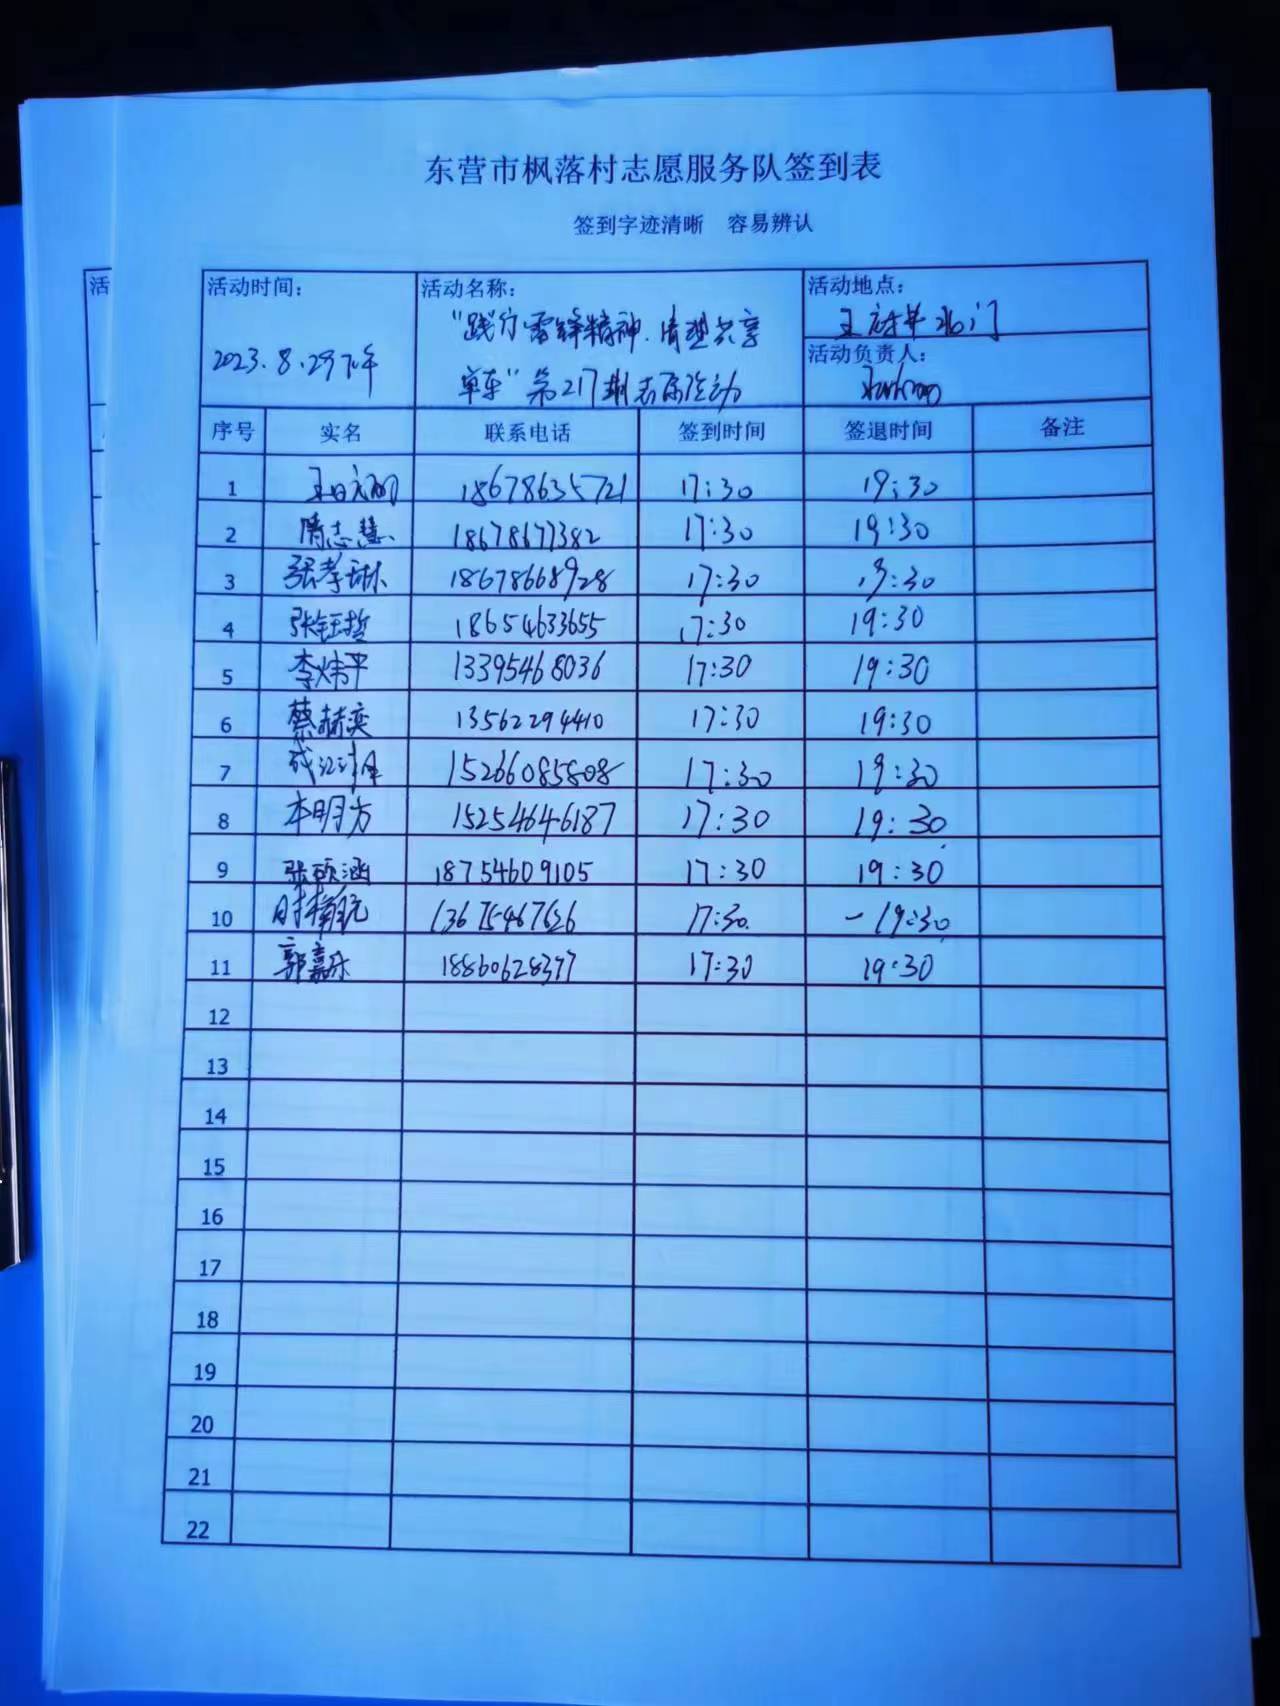 东营市枫落村志愿服务队签到表
签到字迹清晰 容易辨认
活
活动时间： 活动名称： 活动地点：
"践行雷锋精神.清理共享
王府井北门
2023.8.29下午
活动负责人：
单车"第217期志愿活动
序号 实名 联系电话 签到时间 签退时间 备注
1 18678635721 17:30 19:30
2 隋志慧 18678677382 17:30 19:30
3 张孝琳 18678668928 17:30 19:30
4 张钰哲 18654633655 17:30 19:30
5 李炜平 13395468036 17:30 19:30
6 蔡赫奕 13562294410 17:30 19:30
7 15266085808 17:30 19:30
8 李明方 15254646187 17:30 19:30
9 张硕涵 18754609105 17:30 19:30
10 13675467626 17:30. -19:30
11 郭嘉乐 18860628377 17:30 19:30
12
13
14
15
16
17
18
19
20
21
22